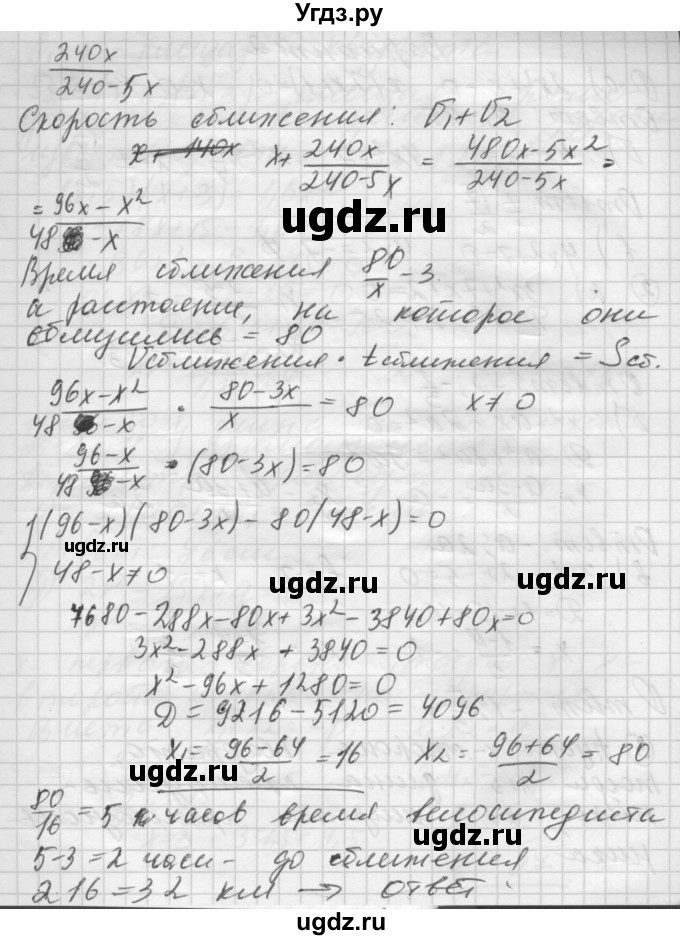 Угдз.ру
240x / (240-5x)
Скорость сближения: V₁+V₂
x + 240x/(240-5x) = (480x-5x²)/(240-5x) =
= (96x-x²)/(48-x)
ugdz.ru
Время сближения 80/x - 3.
а расстояние, на которое они
сблизились = 80
Vсближения · tсближения = Sсб.
(96x-x²)/(48-x) · (80-3x)/x = 80 x≠0
(96-x)/(48-x) · (80-3x)=80
ugdz.ru
(96-x)(80-3x)-80(48-x)=0
ugdz.ru
48-x≠0
ugdz.ru
ugdz.ru
7680-288x-80x+3x²-3840+80x=0
3x²-288x+3840=0
x²-96x+1280=0
D=9216-5120=4096
x₁= (96-64)/2 =16 x₂= (96+64)/2 =80
ugdz.ru
80/16 =5 часов время велосипедиста
ugdz.ru
5-3=2 часа- до сближения
2·16=32 км → ответ.
ugdz.ru
ugdz.ru